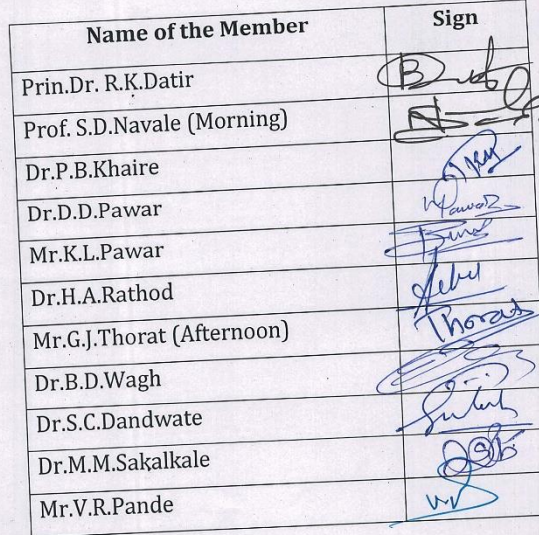 Name of the Member Sign
Prin.Dr. R.K.Datir
Prof. S.D.Navale (Morning)
Dr.P.B.Khaire
Dr.D.D.Pawar
Mr.K.L.Pawar
Dr.H.A.Rathod
Mr.G.J.Thorat (Afternoon) Thorat
Dr.B.D.Wagh
Dr.S.C.Dandwate
Dr.M.M.Sakalkale
Mr.V.R.Pande